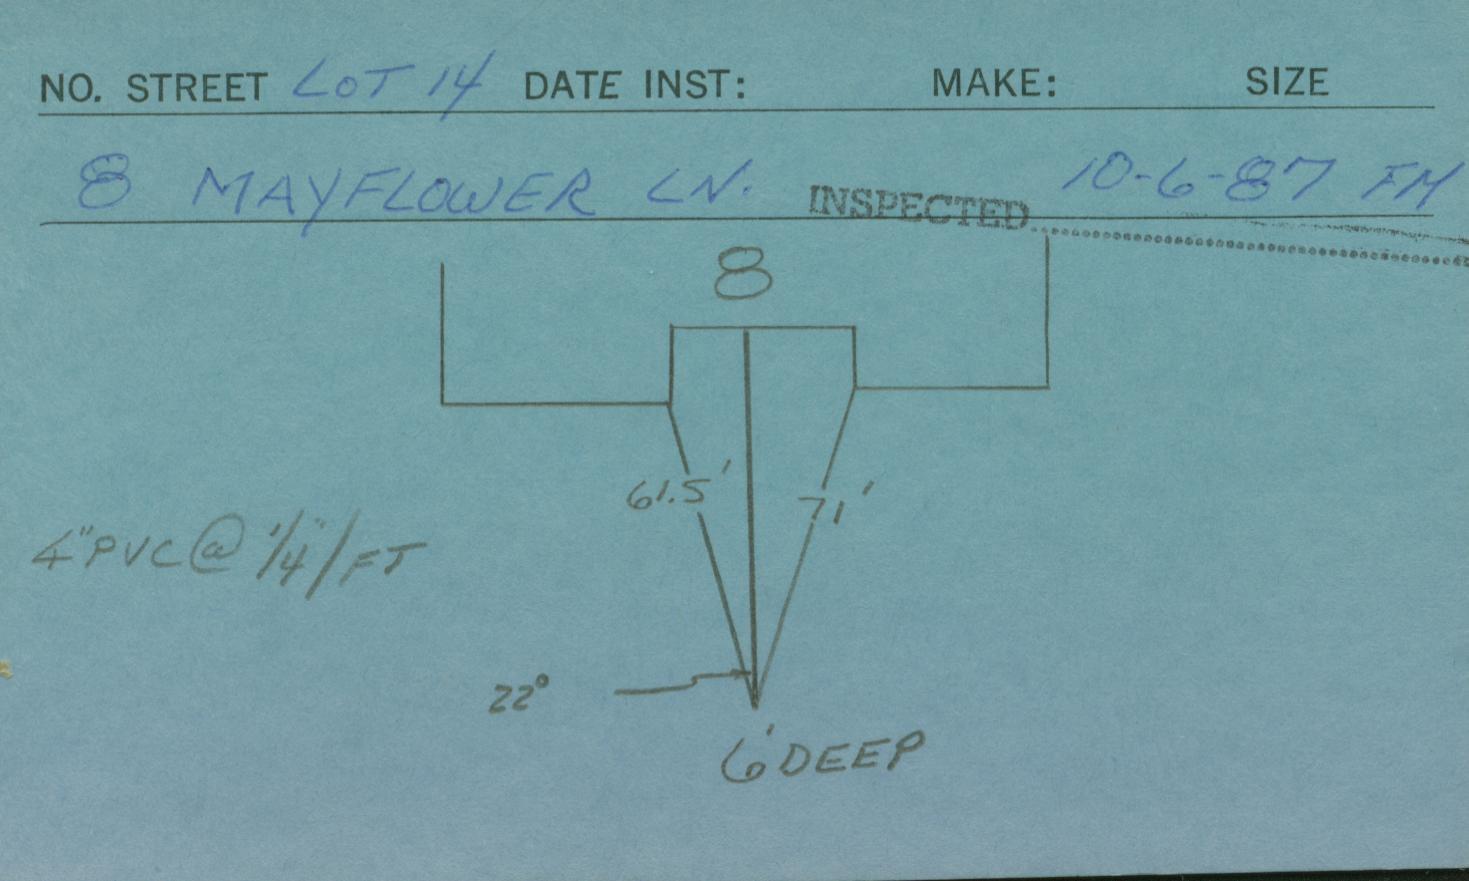 NO. STREET LOT 14 DATE INST: MAKE: SIZE
8 MAYFLOWER LN. INSPECTED 10-6-87 FM
8
61.5' 71'
4" PVC @ 1/4"/FT
22°
6' DEEP